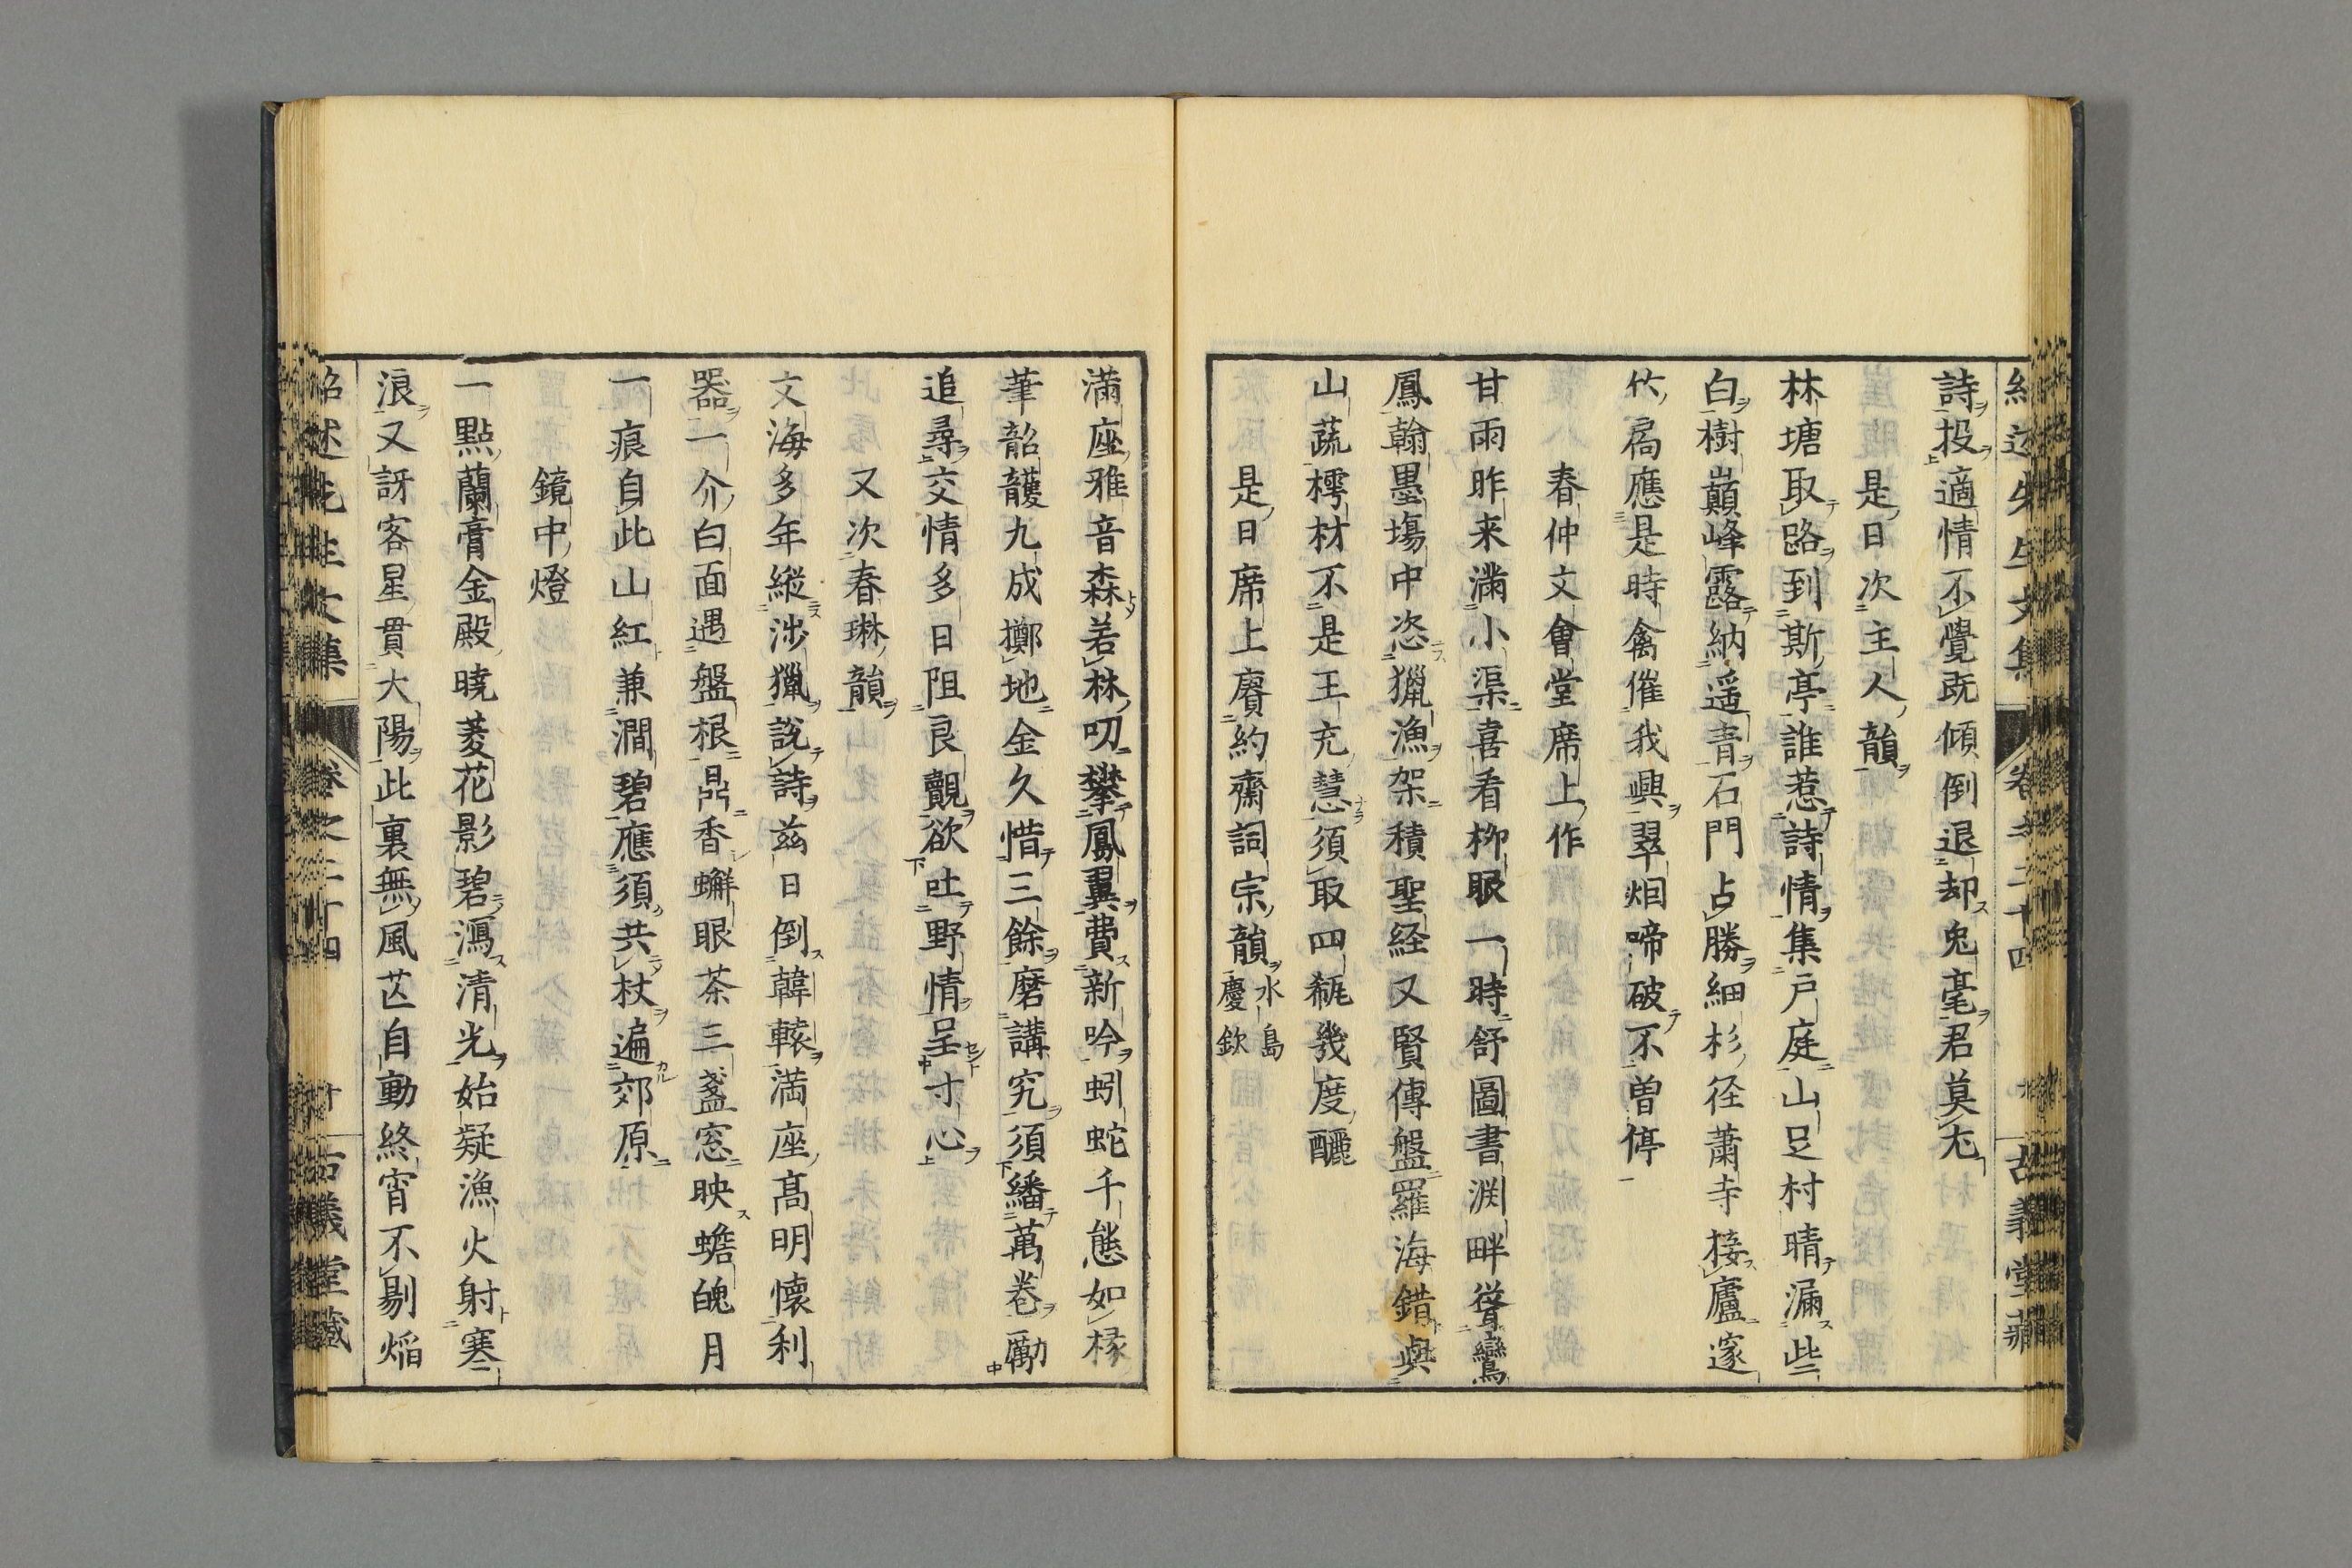 詩投適情不覺既傾倒退却兔毫君莫尤
是日次主人韻
林塘取路到斯亭誰惹詩情集戸庭山足村晴漏些
白樹巓峰露納遥青石門占勝細杉径蕭寺接廬邃
竹扄應是時禽催我興翠烟啼破不曽停
春仲文會堂席上作
甘雨昨来滿小渠喜看栁眼一時舒圖書渕畔聳鸞
鳳翰墨塲中恣獵漁架積聖経又賢傳盤羅海錯與
山蔬樗材不是王充慧須取四瓻幾度釃
是日席上賡約齋詞宗韻 水島慶欽
滿座雅音森若林叨攀鳳翼費新吟蚓蛇千態如椽
筆韶頀九成擲地金久惜三餘磨講究須繙萬卷勵
追尋交情多日阻良覿欲吐野情呈寸心
又次春琳韻
文海多年縦涉獵說詩兹日倒韓轅滿座髙明懐利
器一介白面遇盤根鼎香蠏眼茶三盞窓映蟾魄月
一痕自此山紅兼澗碧應須共杖遍郊原
鏡中燈
一點蘭膏金殿暁菱花影碧瀉清光始疑漁火射寒
浪又訝客星貫大陽此裏無風苉自動終宵不剔熖
紹述先生文集 卷之二十四 十 古義堂藏